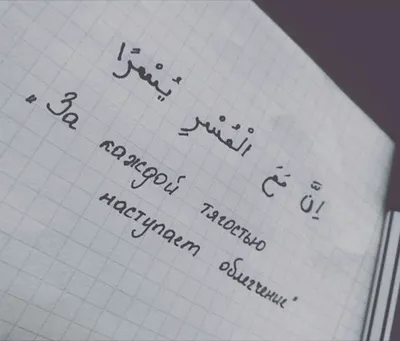 إِنَّ مَعَ الْعُسْرِ يُسْرًا
"За каждой тягостью
наступает облегчение"